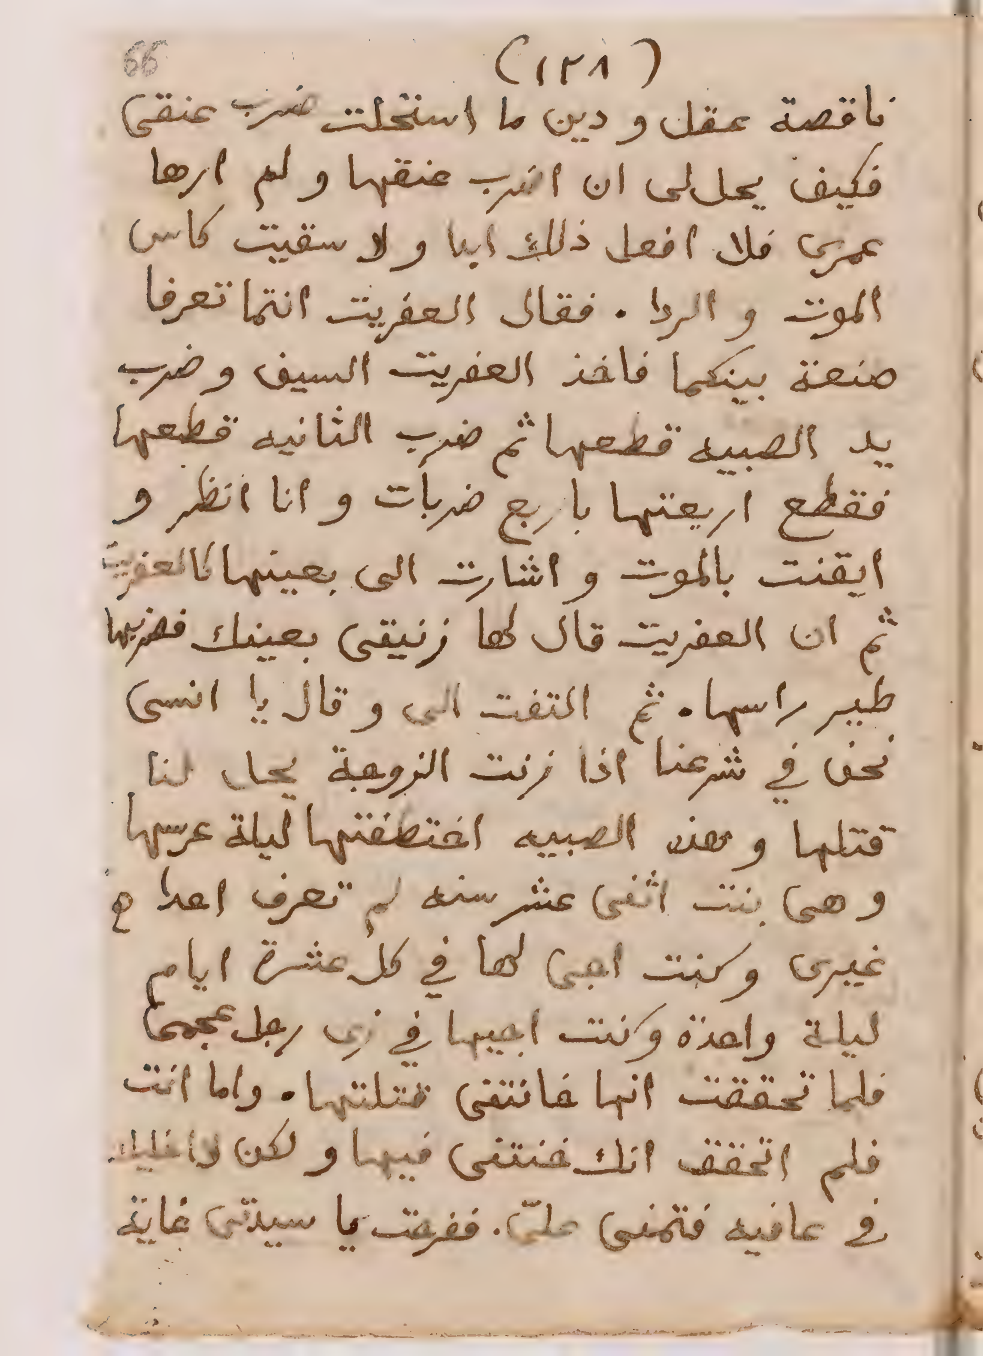 66 (١٣٨)
ناقصة عقل و دين ما استحلت ضرب عنقى
فكيف يحل لى ان اضرب عنقها و لم ارها
عمرى فلا افعل ذلك ابدا و لا سقيت كاس
الموت و الردا . فقال العفريت انتما تعرفا
صنعة بينكما فاخذ العفريت السيف و ضرب
يد الصبيه قطعها ثم ضرب الثانيه قطعها
فقطع اربعتها باربع ضربات و انا انظر و
ايقنت بالموت و اشارت الى بعينها كالعفريت
ثم ان العفريت قال لها زنيتى بعينك فضربها
طير راسها . ثم التفت الى و قال يا انسى
نحن في شرعنا اذا زنت الزوجة يحل لنا
قتلها و هذه الصبيه اختطفتها ليلة عرسها
و هى بنت اثنى عشر سنه لم تعرف احدا
غيرى و كنت اجى لها في كل عشرة ايام
ليلة واحدة و كنت اجيها في زى رجل عجمى
فلما تحققت انها خانتنى قتلتها . واما انت
فلم اتحقق انك خنتنى فيها و لكن
في عافيه فتمنى علىّ . ففرحت يا سيدتى غاية